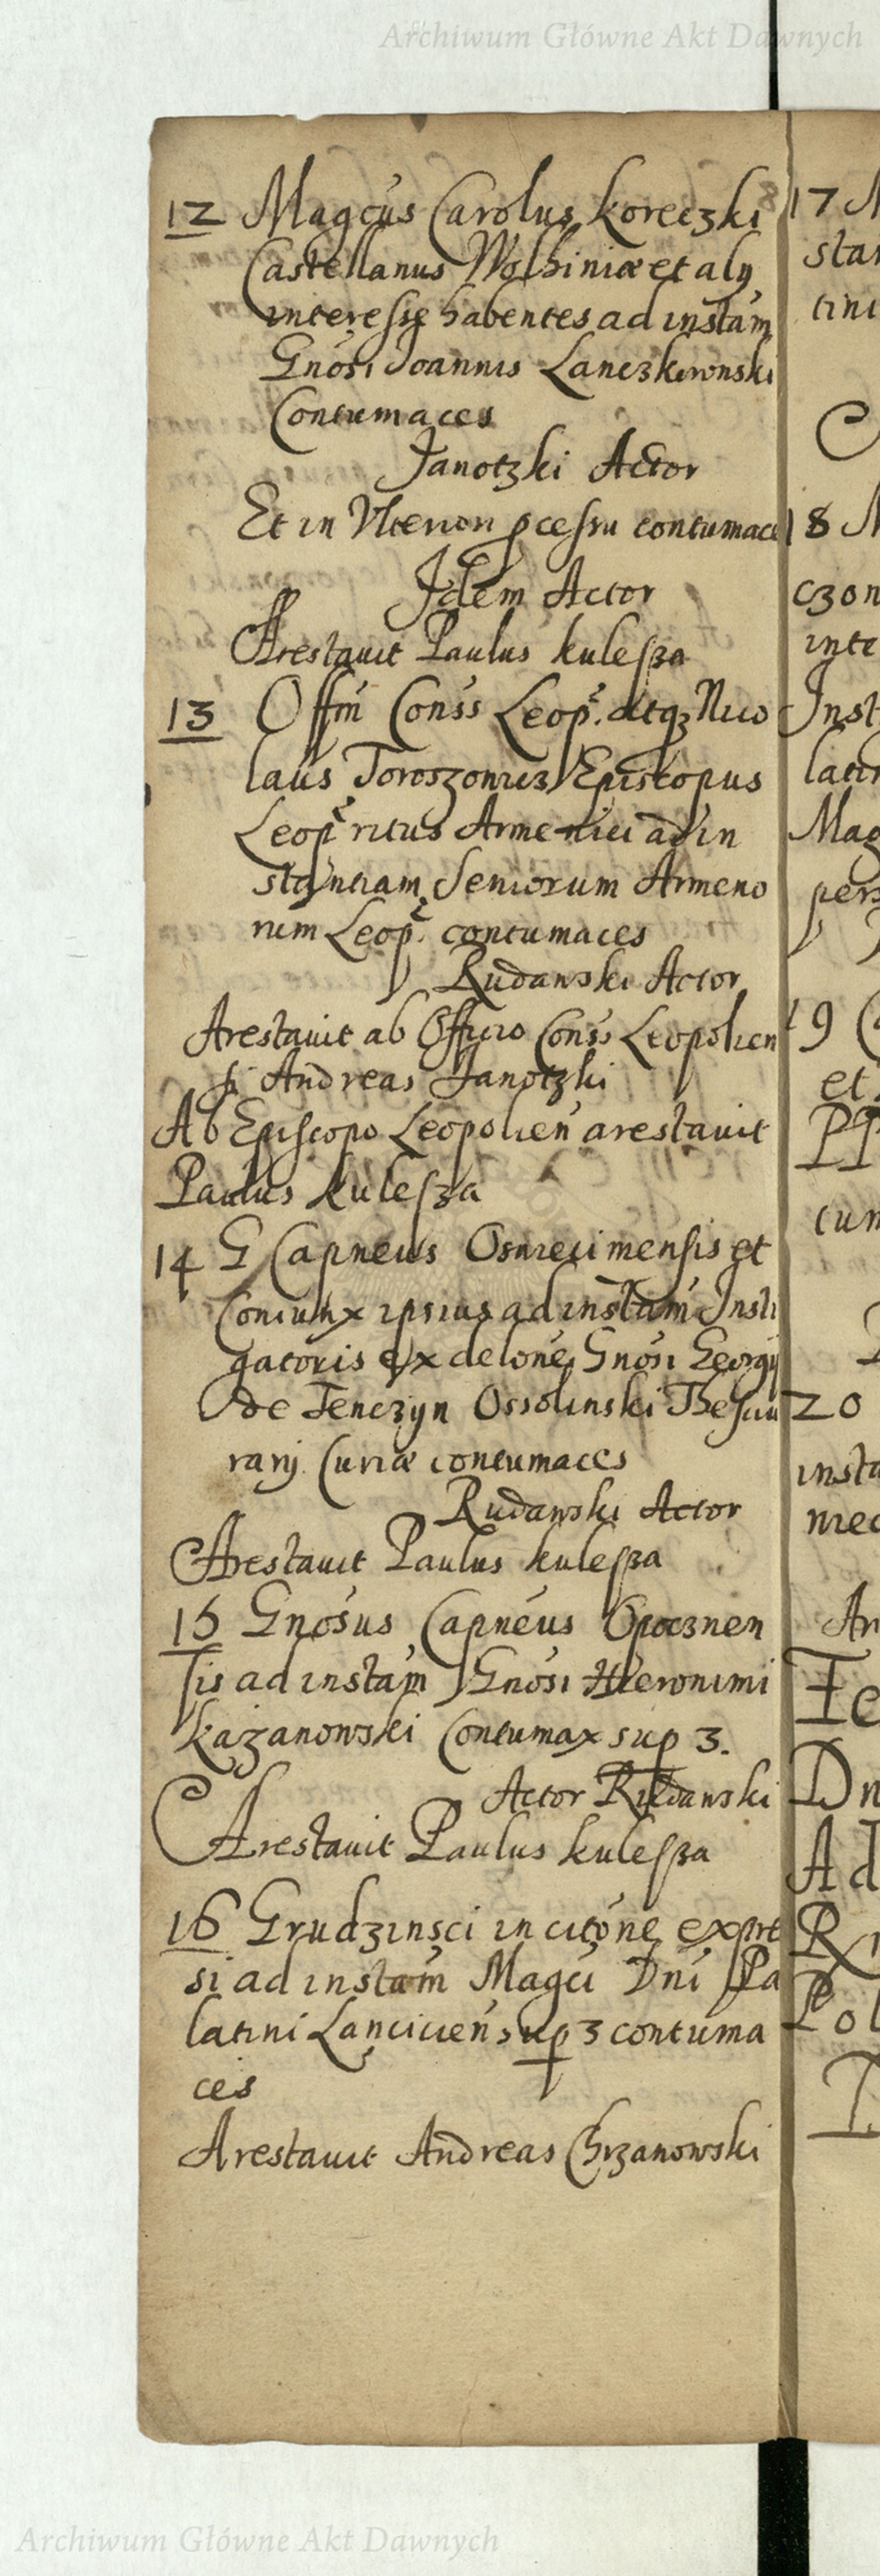 Archiwum Główne Akt Dawnych
12 Magcús Carolus Koreczki
Castellanus Wolhiniæ et alij
interesse habentes ad instám
Gnósi Joannis Lanczkoronski
Contumaces
Janotzki Actor
Et in Vlteriori pcessu contumace
Idem Actor
Arestavit Paulus Kulesza
13 Offm Conss Leop. atq3 Nico
laus Toroszowicz Episcopus
Leop ritus Armenici ad in
stantiam Seniorum Armeno
rum Leop. contumaces
Rudawski Actor
Arestavit ab Officio Conss Leopolien
si Andreas Janotzki
Ab Episcopo Leopolien arestavit
Paulus Kulesza
14 G Capneus Oswiecimensis et
Coniunx ipsius ad instám Insti
gatoris ex delone Gnósi Georgij
de Tenczyn Ossolinski Thesau
rarij Curiæ contumaces
Rudawski Actor
Arestavit Paulus Kulesza
15 Gnósus Capnéus Opocznen
sis ad instám Gnósi Hieronimi
Kazanowski Contumax sup 3.
Actor Rudawski
Arestavit Paulus Kulesza
16 Grudzinsci in citóne expres
si ad instám Magci Dni Pa
latini Lanciciens sup 3 contuma
ces
Arestavit Andreas Chrzanowski
17 M
star
tini
18 M
czon
inte
Inst
latin
Mag
pers
19
et
cum
20
insta
niec
Ar
Te
Dn
Ad
R
Pol
Archiwum Główne Akt Dawnych